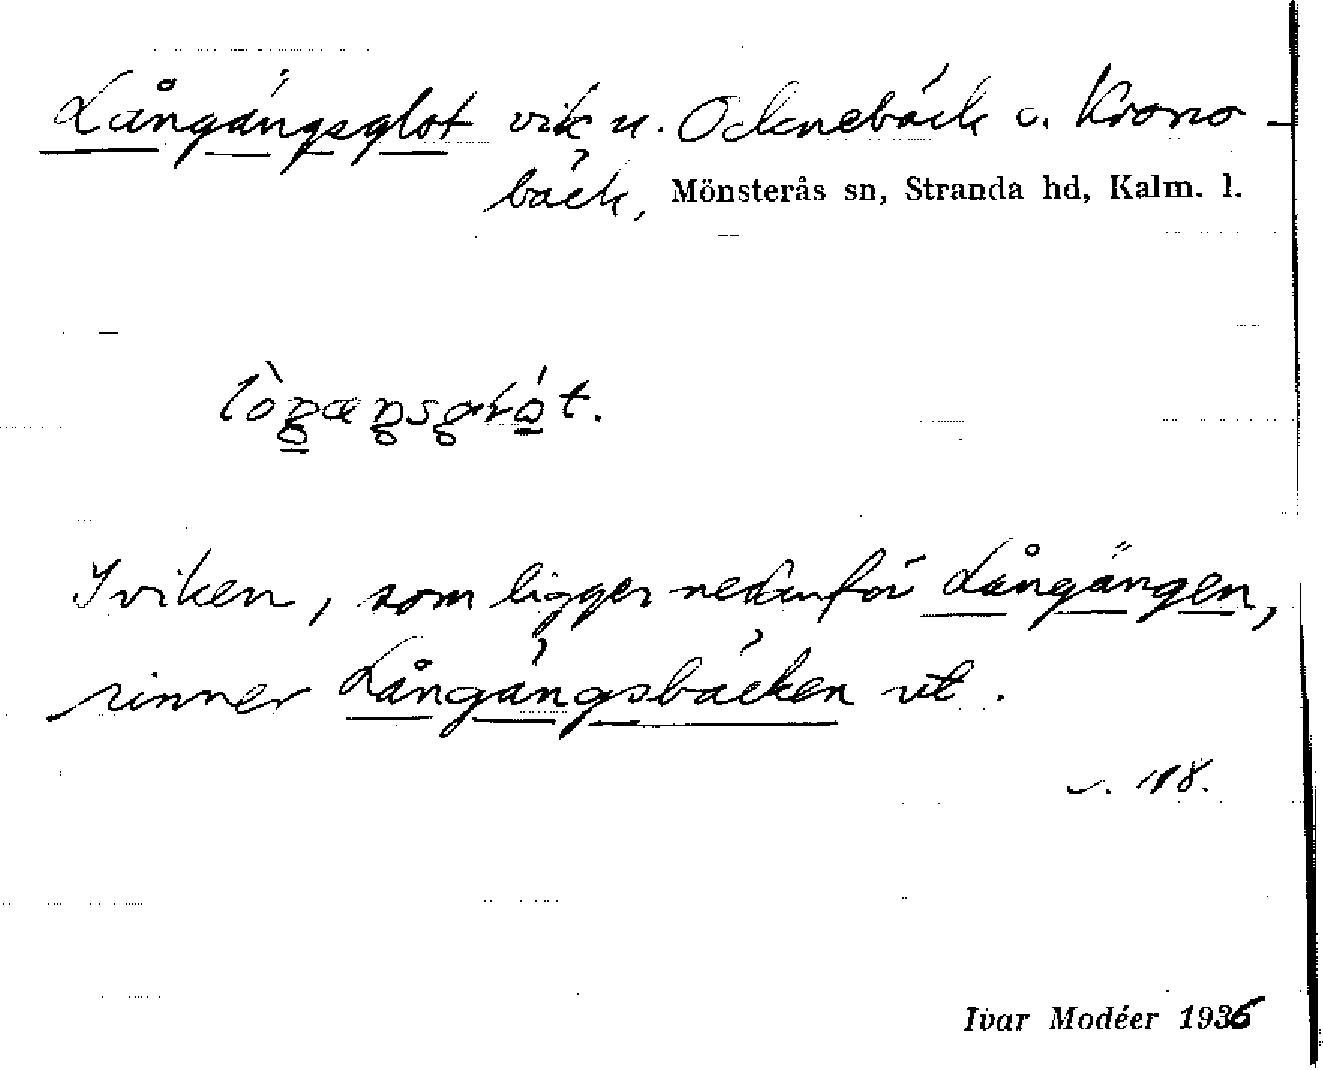 Långängsglot vik u. Oknebäck o. Krono-
bäck, Mönsterås sn, Stranda hd, Kalm. l.
I viken, som ligger nedanför Långängen,
rinner Långängsbäcken ut.
Ivar Modéer 1936